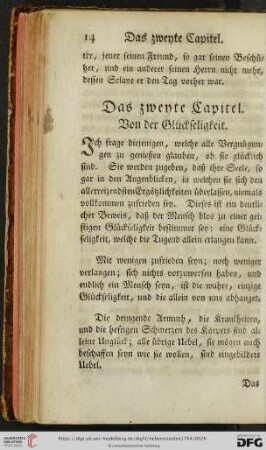 14 Das zweyte Capitel.
ter, jener seinen Freund, so gar seinen Beschü-
tzer, und ein anderer seinen Herrn nicht mehr,
dessen Sclave er den Tag vorher war.
Das zweyte Capitel.
Von der Glückseligkeit.
Ich frage diejenigen, welche alle Vergnügun-
gen zu genießen glauben, ob sie glücklich
sind. Sie werden zugeben, daß ihre Seele, so
gar in den Augenblicken, in welchen sie sich den
allerreizendsten Ergötzlichkeiten überlassen, niemals
vollkommen zufrieden sey. Dieses ist ein deutli-
cher Beweis, daß der Mensch blos zu einer gei-
stigen Glückseligkeit bestimmet sey: eine Glück-
seligkeit, welche die Tugend allein erlangen kann.
Mit wenigen zufrieden seyn; noch weniger
verlangen; sich nichts vorzuwerfen haben, und
endlich ein Mensch seyn, ist die wahre, einzige
Glückseligkeit, und die allein von uns abhanget.
Die dringende Armuth, die Krankheiten,
und die heftigen Schmerzen des Körpers sind al-
leine Unglück; alle übrige Uebel, sie mögen auch
beschaffen seyn wie sie wollen, sind eingebildete
Uebel.
Das
UNIVERSITÄTS-
BIBLIOTHEK
HEIDELBERG
© Universitätsbibliothek Heidelberg
gefördert durch die
DFG